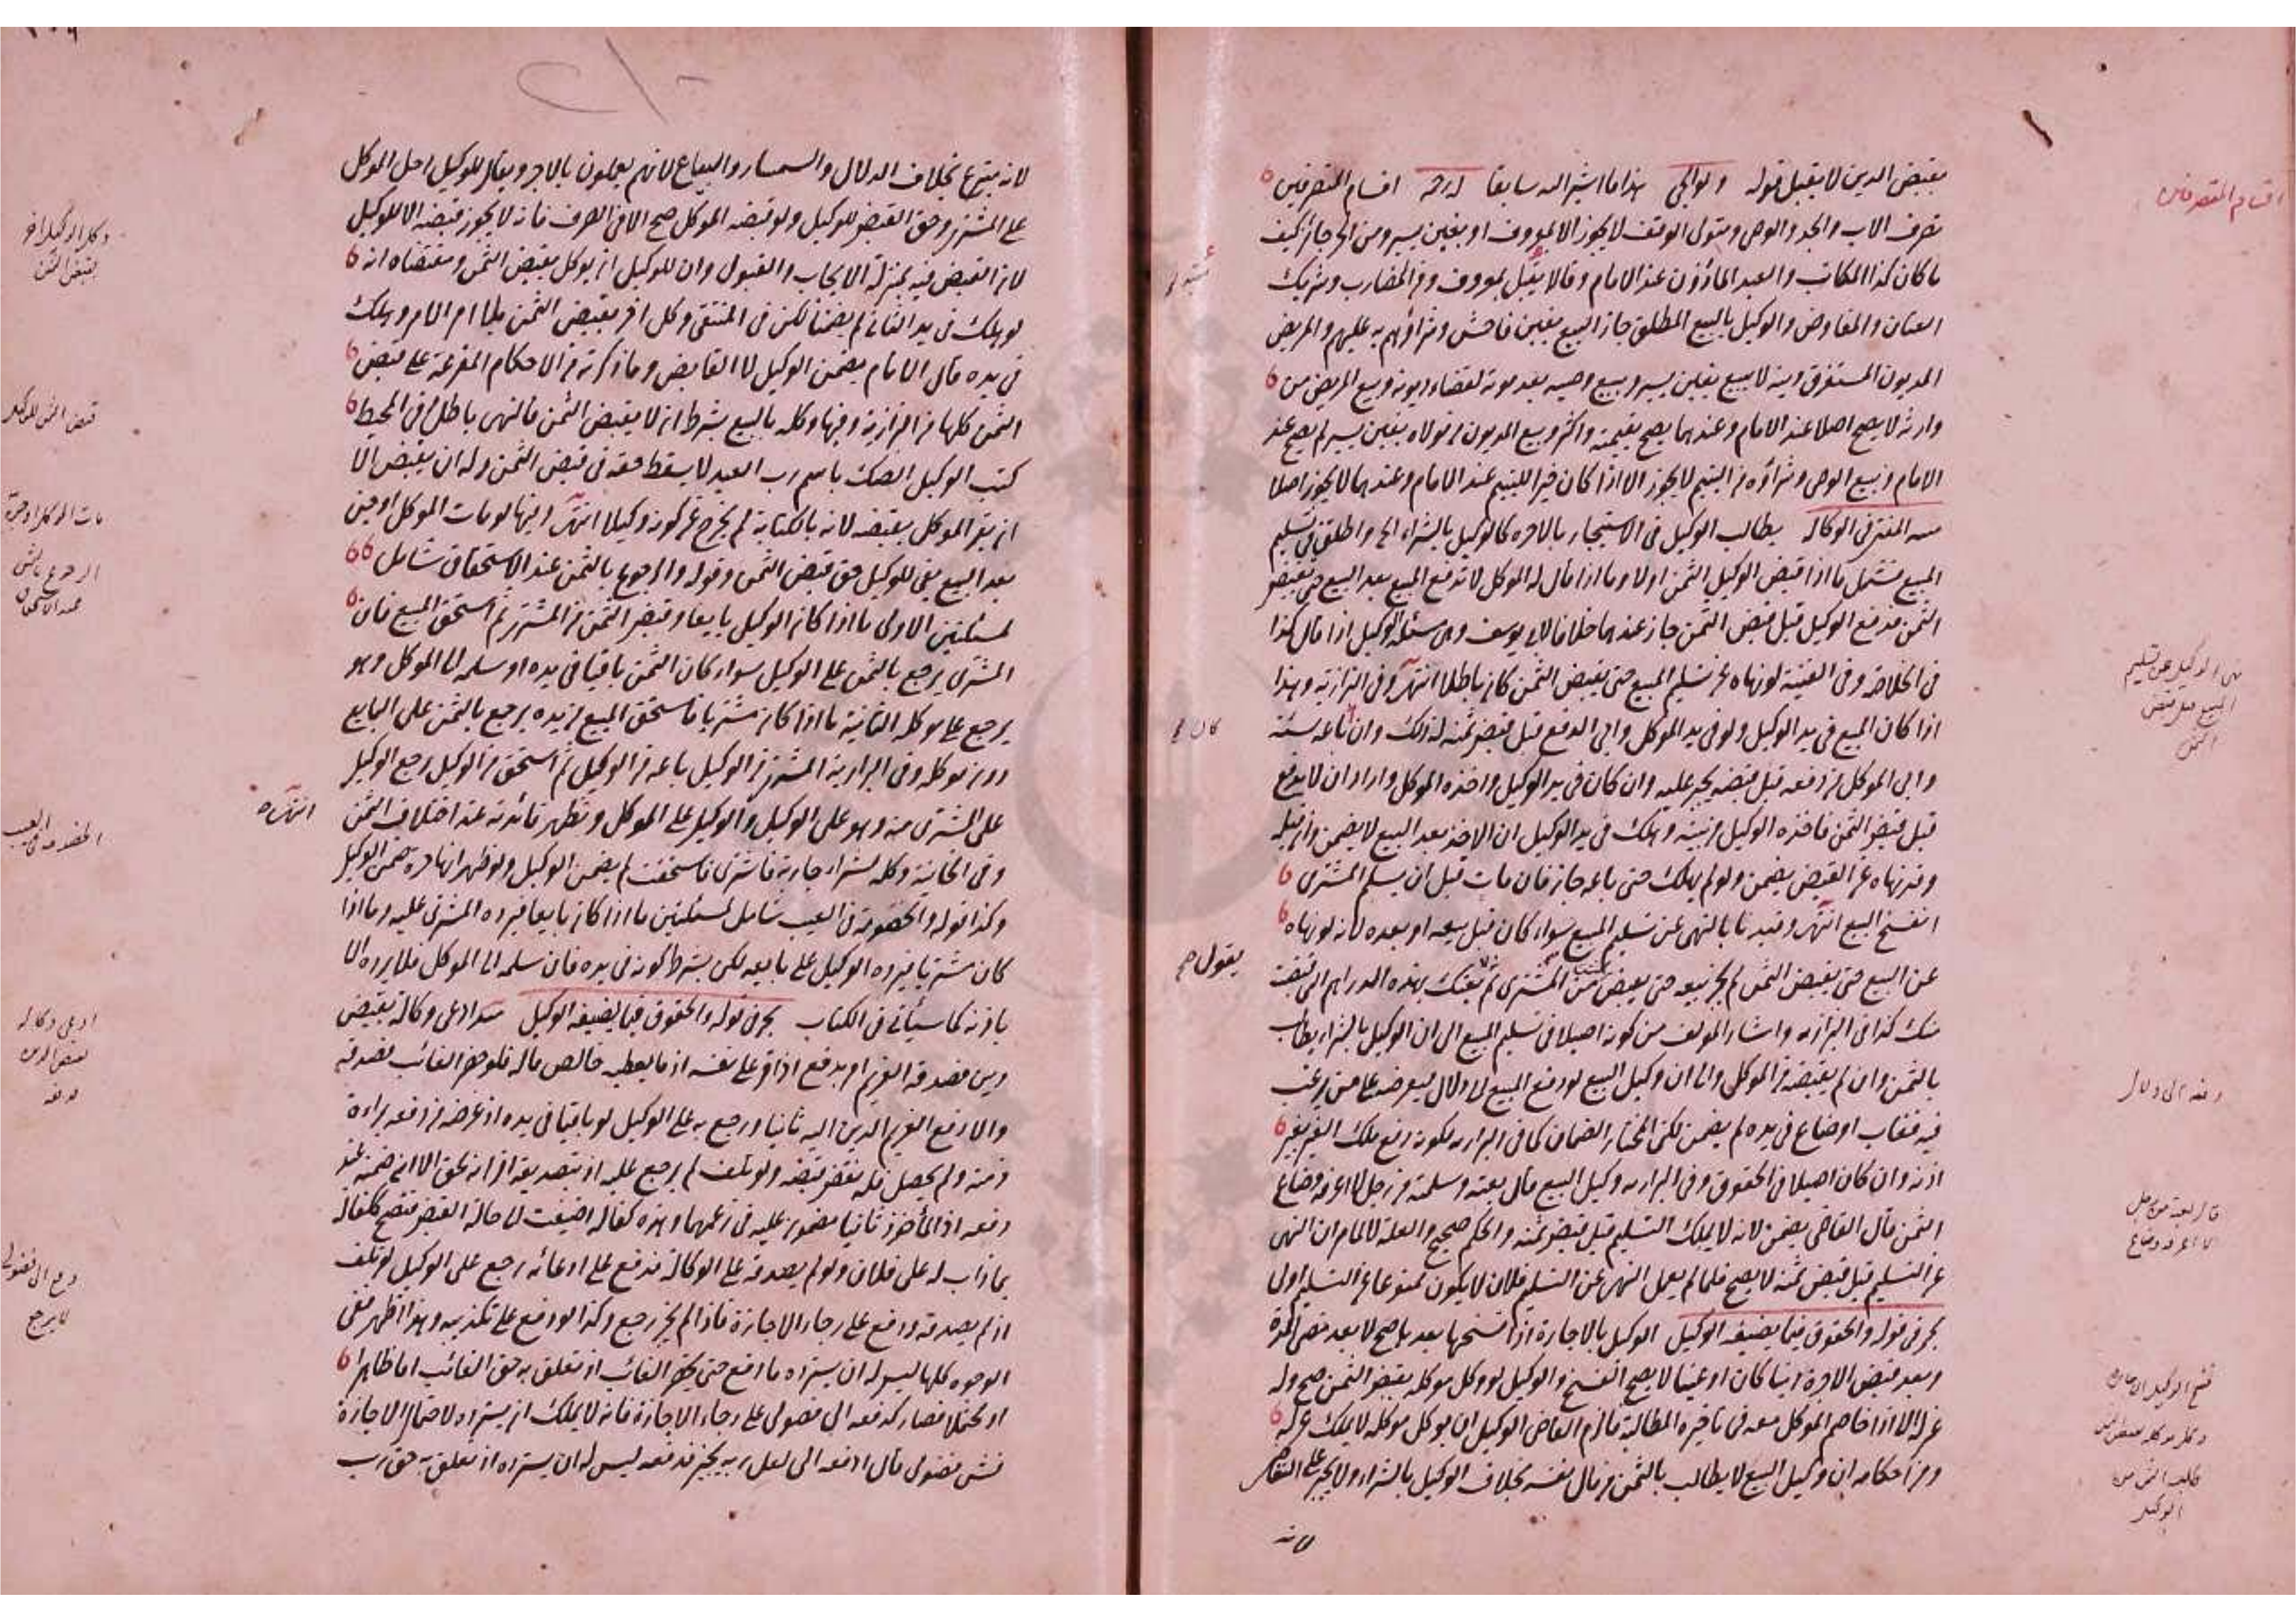 بقبض الدين لا يقبل قوله ولوالجي هذا ما اشير اليه سابقا اقسام المتصرفين
تصرف الاب والجد والوصي ومتولي الوقف لا يجوز الا بالمعروف او بغبن يسير ومن الحر جاز كيف
ما كان كذا المكاتب والعبد الماذون عند الامام وقالا يقبل بمعروف ومن المضارب وشريك
العنان والمفاوض والوكيل بالبيع المطلق جاز البيع بغبن فاحش وشراؤهم به عليهم والمريض
المديون المستغرق دينه لا يبيع بغبن يسير وبيع وصيه بعد موته لقضاء ديونه وبيع المريض من
وارثه لا يصح اصلا عند الامام وعندهما يصح بقيمته واكثر وبيع المديون من مولاه بغبن يسير لم يصح عند
الامام وبيع الوصي وشراؤه من اليتيم لا يجوز الا اذا كان خيرا لليتيم عند الامام وعندهما لا يجوز اصلا
منية المفتي في الوكالة يطالب الوكيل في الاستيجار بالاجرة كالوكيل بالشراء واطلق في تسليم
المبيع فشمل ما اذا قبض الوكيل الثمن اولا وما اذا قال له الموكل لا تدفع المبيع بعد البيع حتى تقبض
الثمن فدفع الوكيل قبل قبض الثمن جاز عندهما خلافا لابي يوسف وهي مسئلة الوكيل اذا قال كذا
في الخلاصة وفي القنية لو نهاه عن تسليم المبيع حتى يقبض الثمن كان باطلا انتهى وفي البزازية وهذا
اذا كان المبيع في يد الوكيل ولو في يد الموكل وابى الدفع قبل قبض ثمنه له ذلك وان باعه نسئة
وابى الموكل من دفعه قبل قبضه يجبر عليه وان كان في يد الوكيل واخذه الموكل واراد ان لا يدفع
قبل قبض الثمن فاخذه الوكيل من بيته وهلك في يد الوكيل ان الاخذ بعد البيع لا يضمن وان قبله
وقد نهاه عن القبض يضمن ولو لم يهلك حتى باعه جاز فان مات قبل ان يسلم المشتري
انفسخ البيع انتهى وقيدنا بالنهي عن تسليم المبيع سواء كان قبل بيعه او بعده لانه لو نهاه
عن البيع حتى يقبض الثمن لم يجز بيعه حتى يقبض ثمن المشتري ثم بعتك بهذه الدراهم التي قبضت
منك كذا في البزازية واشار المؤلف من كونه اصيلا في تسليم المبيع الى ان الوكيل بالشراء يطالب
بالثمن وان لم يقبضه من الموكل والى ان وكيل البيع لو دفع المبيع الى دلال ليعرضه على من يرغب
فيه فغاب او ضاع في يده لم يضمن لكن المختار الضمان كما في البزازية لكونه دفع ملك الغير بغير
اذنه وان كان اصيلا في الحقوق وفي البزازية وكيل البيع قال بعته وسلمته من رجل لا اعرفه وضاع
الثمن قال القاضي يضمن لانه لا يملك التسليم قبل قبض ثمنه والحكم صحيح والعلة لا لما مر ان النهي
عن التسليم قبل قبض ثمنه لا يصح فلما لم يعمل النهي عن التسليم فلان لا يكون ممنوعا عن التسليم اولى
بحر في قوله والحقوق فيما يضيفه الوكيل الوكيل بالاجارة اذا فسخها بعدها صح لا بعد مضي المدة
وبعد قبض الاجرة دينا كان او عينا لا يصح الفسخ والوكيل لو وكل موكله بقبض الثمن صح وله
عزله الا اذا خاصم الموكل معه في تاخيره المطالبة فالزم القاضي الوكيل ان يوكل موكله لا يملك عزله
ومن احكامه ان وكيل البيع لا يطالب بالثمن من مال نفسه بخلاف الوكيل بالشراء ولا يجبر على التقاضي
لانه
اقسام المتصرفين
نهى الوكيل عن تسليم
المبيع قبل قبض
الثمن
دفعه الى دلال
قال بعته من رجل
لا اعرفه وضاع
فسخ الوكيل الاجارة
الوكيل
لانه متبرع بخلاف الدلال والسمسار والبياع لانهم يعملون بالاجر ويقال للوكيل احل الموكل
على المشتري وحق القبض للوكيل ولو قبضه الموكل صح الا في الصرف فانه لا يجوز قبضه الا للوكيل
لان القبض فيه بمنزلة الايجاب والقبول وان للوكيل ان يوكل بقبض الثمن ومقتضاه انه
لو هلك في يد الثاني لم يضمنا لكن في المنتقى وكل اخر بقبض الثمن بلا امر الامر وهلك
في يده قال الامام يضمن الوكيل لا القابض وما ذكرته من الاحكام المفرعة على قبض
الثمن كلها من البزازية وفيها وكله بالبيع بشرط ان لا يقبض الثمن فالنهي باطل وفي المحيط
كتب الوكيل الصك باسم رب العبد لا يسقط حقه في قبض الثمن وله ان يقبض الا
ان يقر الموكل بقبضه لانه بالكتابة لم يخرج عن كونه وكيلا انتهى وفيها لو مات الموكل او جن
بعد البيع بقي للوكيل حق قبض الثمن وقوله والرجوع بالثمن عند الاستحقاق شامل
لمسئلتين الاولى ما اذا كان الوكيل بايعا وقبض الثمن من المشتري ثم استحق المبيع فان
المشتري يرجع بالثمن على الوكيل سواء كان الثمن باقيا في يده او سلمه الى الموكل وهو
يرجع على موكله الثانية ما اذا كان مشتريا فاستحق المبيع من يده يرجع بالثمن على البايع
دون موكله وفي البزازية المشتري من الوكيل باعه من الوكيل ثم استحق من الوكيل رجع الوكيل
على المشتري منه وهو على الوكيل والوكيل على الموكل وتظهر فائدته عند اختلاف الثمن
انتهى
وفي الخانية وكله بشراء جارية فاشترى فاستحقت لم يضمن الوكيل ولو ظهر انها حرة ضمن الوكيل
وكذا قوله والخصومة في العيب شامل لمسئلتين ما اذا كان بايعا فيرده المشتري عليه وما اذا
كان مشتريا فيرده الوكيل على بايعه لكن بشرط كونه في يده فان سلمه الى الموكل فلا يرده الا
باذنه كما سيأتي في الكتاب بحر في قوله والحقوق فيما يضيفه الوكيل ادعى وكالة بقبض
دين فصدقه الغريم امر بدفع اذ اقر على نفسه اذ ما يعطيه خالص ماله فلو حضر الغائب فصدقه
والا دفع الغريم الدين اليه ثانيا ورجع به على الوكيل لو باقيا في يده اذ غرضه من دفعه براءة
ذمته ولم يحصل فله نقض قبضه ولو تلف لم يرجع عليه اذ بتصديقه اقر انه محق الا ان ضمنه عند
دفعه اذ المأخوذ ثانيا مضمون عليه في زعمهما وهذه كفالة اضيفت لحالة القبض فتصح ككفالة
بما ذاب له على فلان ولو لم يصدقه على الوكالة فدفع على ادعائه رجع على الوكيل لو تلف
اذ لم يصدقه ودفع على رجاء الاجازة فاذا لم يجز رجع وكذا لو دفع على تكذيبه وهذا اظهر ففي
الوجوه كلها ليس له ان يسترد ما دفع حتى يحضر الغائب اذ تعلق به حق الغائب اما ظاهرا
او محتملا فصار كدفعه الى فضولي على رجاء الاجازة فانه لا يملك ان يسترد لاحتمال الاجازة
فش فضولي قال ادفعه الي لعل ربه يجيز فدفعه ليس له ان يسترده اذ تعلق به حق رب
وكل الوكيل اخر
بقبض الثمن
قبض الثمن للوكيل
الرجوع بالثمن
عند الاستحقاق
الخصومة في العيب
ادعى وكالة
بقبض الدين
دفع الى فضولي
لا يرجع